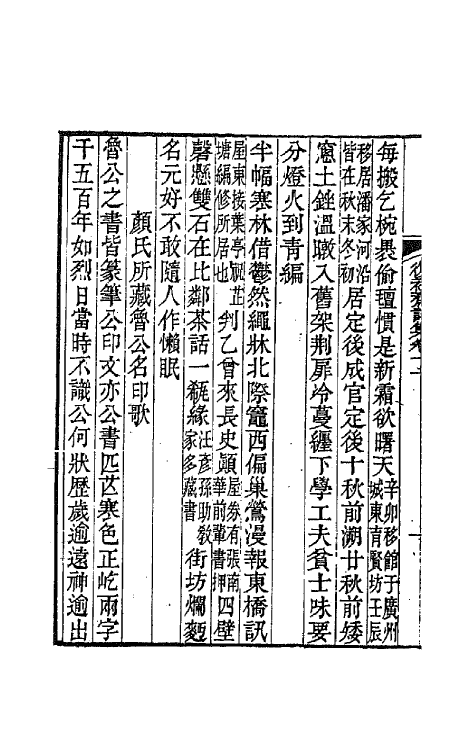 每搬乞椀褁偷𤮀慣是新霜欲曙天辛卯移館于廣州城東育賢坊壬辰
移居潘家河沿皆在秋末冬初居定後成官定後十秋前溯廿秋前矮
窻土銼溫暾入舊架荆扉冷蔓纏下學工夫貧士味要
分燈火到青編
半幅寒林借鬱然繩牀北際竈西偏巢鶯漫報東橋訊
屋東接葉亭祠並塘編修所居也判乙曾來長史顚屋券有張南華前輩書押四壁
磬懸雙石在比鄰茶話一甁緣汪彥孫助敎家多藏書街坊爛麪
名元好不敢隨人作懶眠
顏氏所藏魯公名印歌
魯公之書皆篆筆公印文亦公書匹苉寒色正屹兩字
千五百年如烈日當時不識公何狀歷歲逾遠神逾出